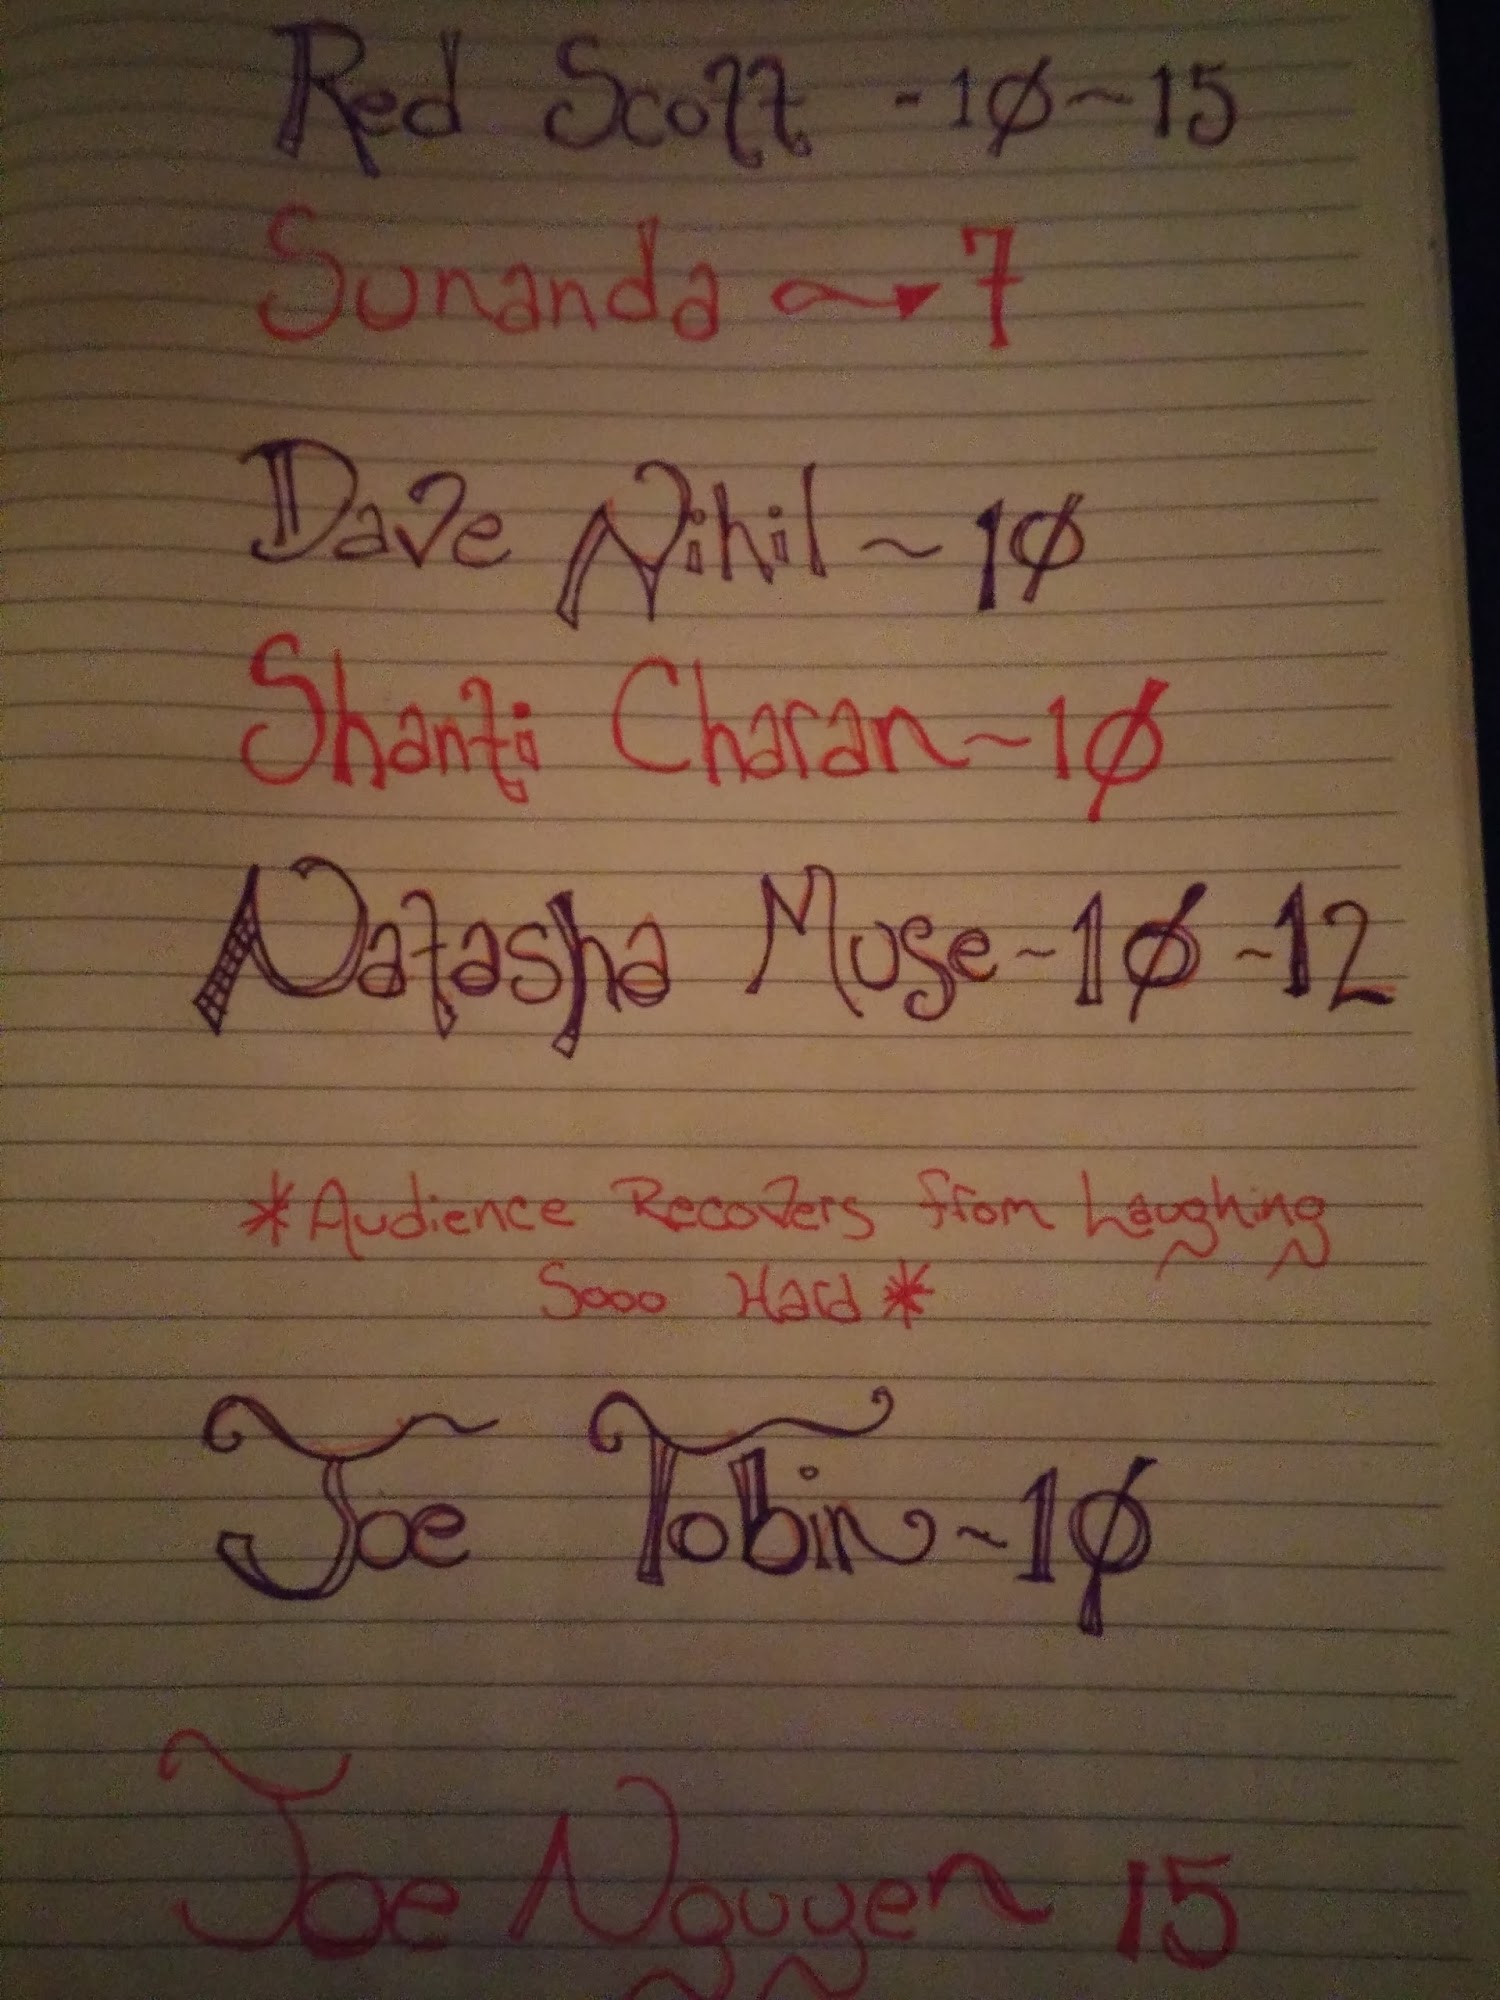 Red Scott - 1Ø ~ 15
Sunanda → 7
Dave Nihil ~ 1Ø
Shanti Charan ~ 1Ø
Natasha Muse ~ 1Ø ~ 12
*Audience Recovers from Laughing
Sooo Hard*
Joe Tobin ~ 1Ø
Joe Nguyen ~ 15